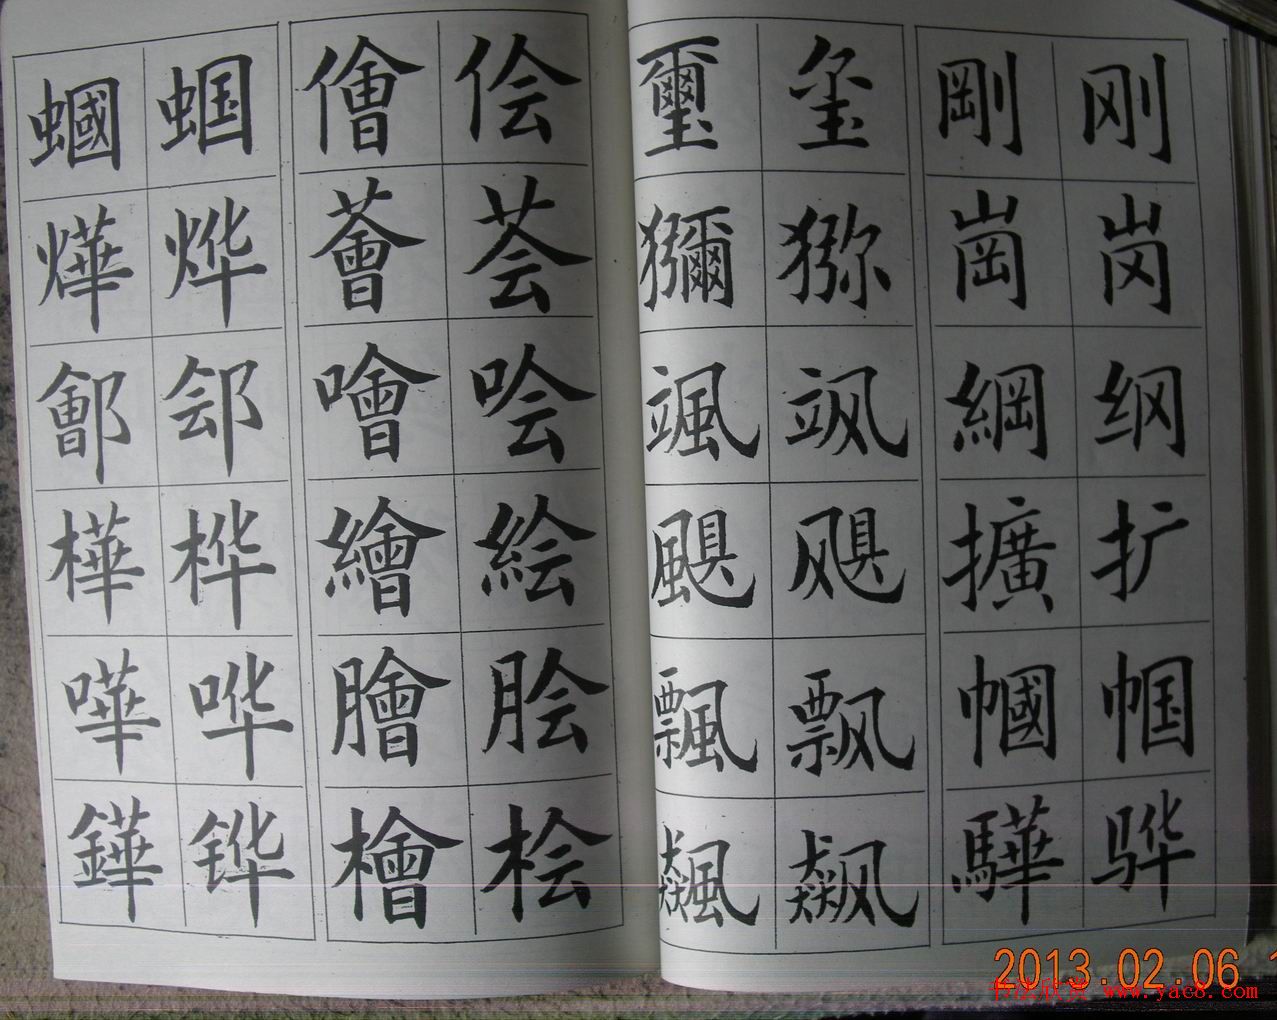 蟈 蝈 儈 侩 璽 玺 剛 刚
燁 烨 薈 荟 獼 猕 崗 岗
鄶 郐 噲 哙 颯 飒 綱 纲
樺 桦 繪 绘 颶 飓 擴 扩
嘩 哗 膾 脍 飄 飘 幗 帼
鏵 铧 檜 桧 飆 飙 驊 骅
2013.02.06 1
书法欣赏 www.yac8.com